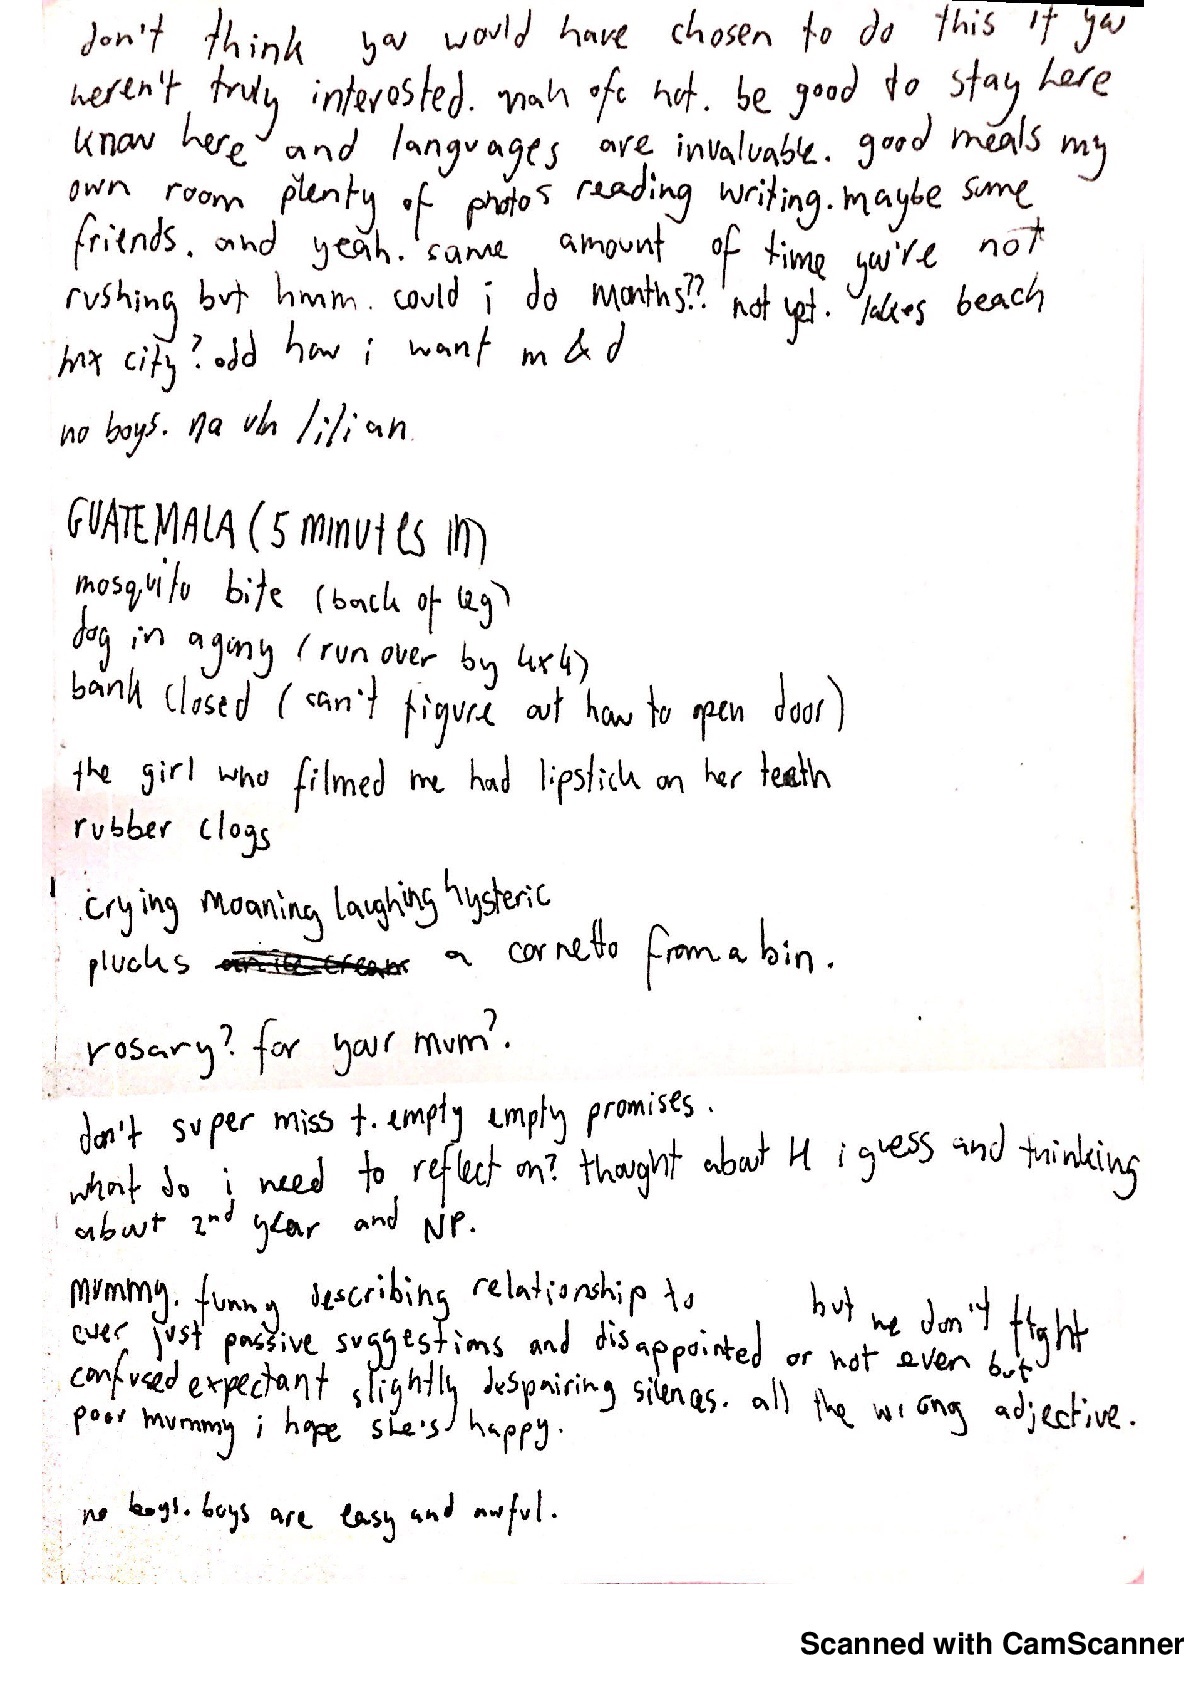 don't think you would have chosen to do this if you
weren't truly interested. nah ofc not. be good to stay here
know here and languages are invaluable. good meals my
own room plenty of photos reading writing. maybe some
friends. and yeah. same amount of time you're not
rushing but hmm. could i do months?? not yet. lakes beach
mx city? odd how i want m & d
no boys. na uh lilian
GUATEMALA (5 minutes in)
mosquito bite (back of leg)
dog in agony (run over by 4x4)
bank closed (can't figure out how to open door)
the girl who filmed me had lipstick on her teeth
rubber clogs
crying moaning laughing hysteric
plucks an ice cream a cornetto from a bin.
rosary? for your mum?
don't super miss t. empty empty promises.
what do i need to reflect on? thought about H i guess and thinking
about 2nd year and NP.
mummy. funny describing relationship to but we don't fight
ever just passive suggestions and disappointed or not even but
confused expectant slightly despairing silences. all the wrong adjective.
poor mummy i hope she's happy.
no boys. boys are easy and awful.
Scanned with CamScanner